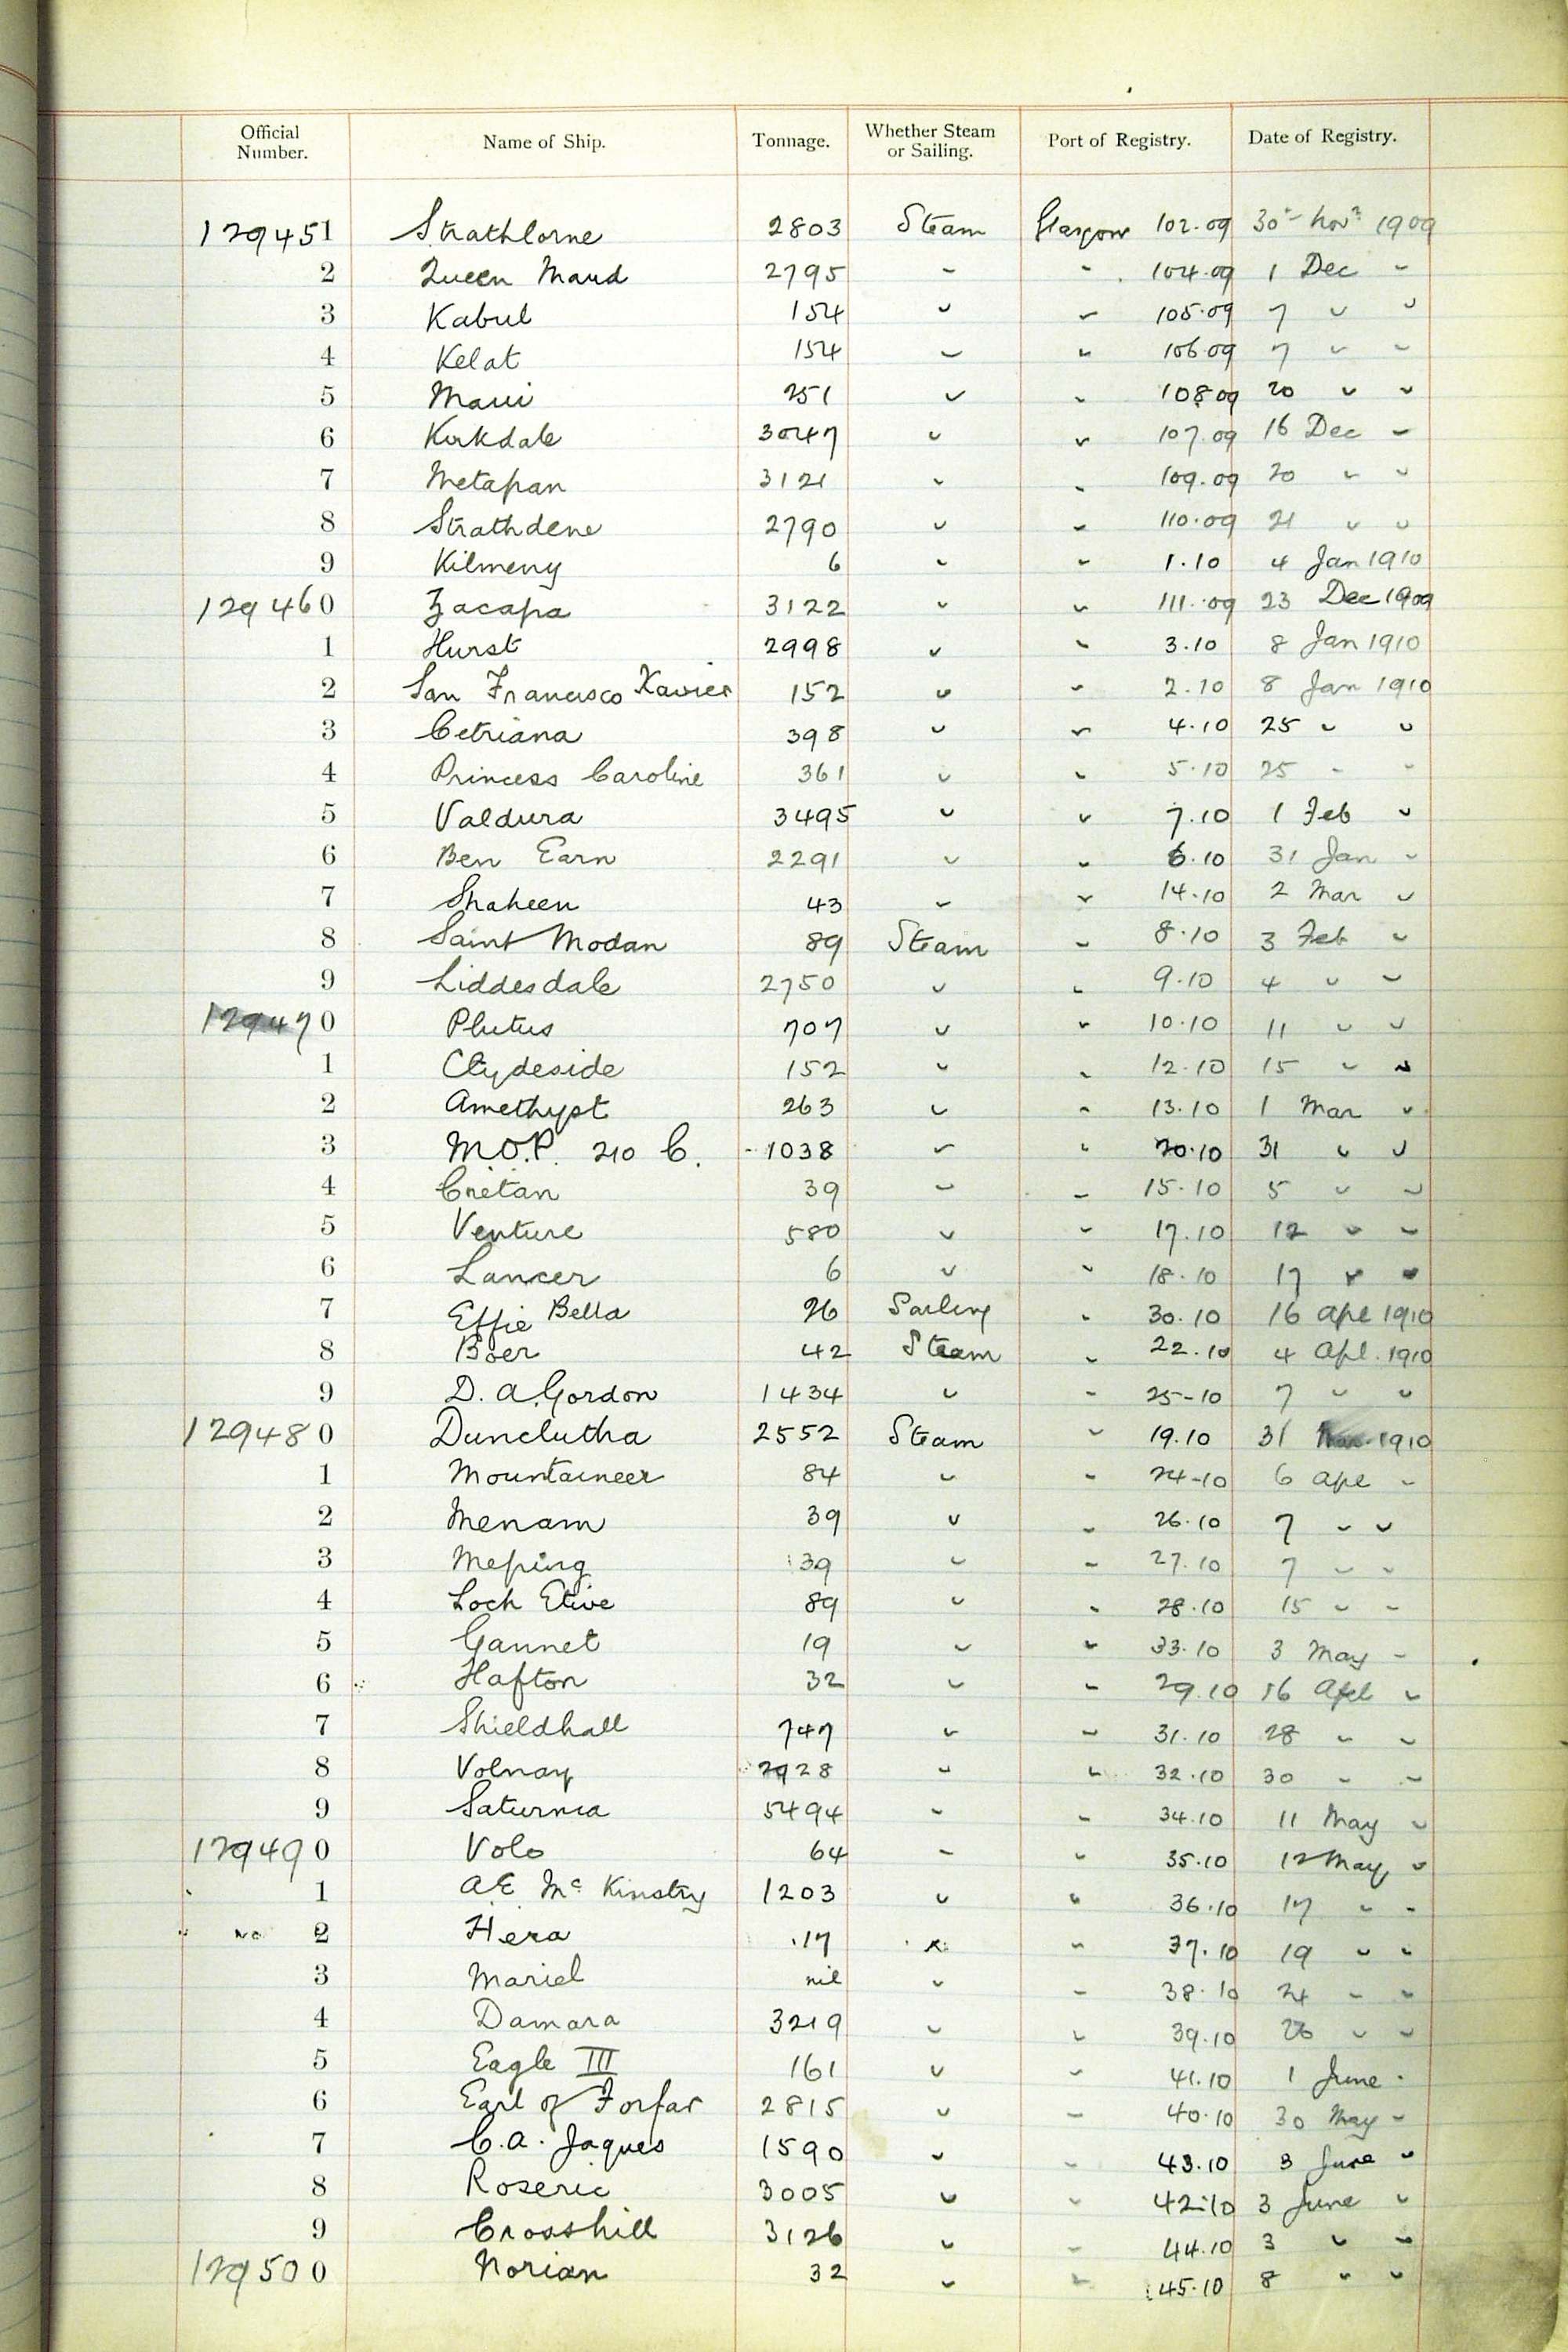 Official Number. Name of Ship. Tonnage. Whether Steam or Sailing. Port of Registry. Date of Registry.
129451 Strathlorne 2803 Steam Glasgow 102.09 30th Novr 1909
2 Queen Maud 2795 " " 104.09 1 Dec "
3 Kabul 154 " " 105.09 7 " "
4 Kelat 154 " " 106.09 7 " "
5 Maui 251 " " 108.09 20 " "
6 Kirkdale 3047 " " 107.09 16 Dec "
7 Metapan 3121 " " 109.09 20 " "
8 Strathdene 2790 " " 110.09 21 " "
9 Kilmeny 6 " " 1.10 4 Jan 1910
129460 Zacapa 3122 " " 111.09 23 Dec 1909
1 Hurst 2998 " " 3.10 8 Jan 1910
2 San Francisco Xavier 152 " " 2.10 8 Jan 1910
3 Cetriana 398 " " 4.10 25 " "
4 Princess Caroline 361 " " 5.10 25 " "
5 Valdura 3495 " " 7.10 1 Feb "
6 Ben Earn 2291 " " 6.10 31 Jan "
7 Shaheen 43 " " 14.10 2 Mar "
8 Saint Modan 89 Steam " 8.10 3 Feb "
9 Liddesdale 2750 " " 9.10 4 " "
129470 Plutus 707 " " 10.10 11 " "
1 Clydeside 152 " " 12.10 15 " "
2 Amethyst 263 " " 13.10 1 Mar "
3 M.O.P. 210 C. 1038 " " 20.10 31 " "
4 Cretan 39 " " 15.10 5 " "
5 Venture 580 " " 17.10 12 " "
6 Lancer 6 " " 18.10 17 " "
7 Effie Bella 26 Sailing " 30.10 16 Apl 1910
8 Boer 42 Steam " 22.10 4 Apl. 1910
9 D. A. Gordon 1434 " " 25-10 7 " "
129480 Dunclutha 2552 Steam " 19.10 31 Mar 1910
1 Mountaineer 84 " " 24-10 6 Apl "
2 Menam 39 " " 26.10 7 " "
3 Meping 39 " " 27.10 7 " "
4 Loch Etive 89 " " 28.10 15 " "
5 Gannet 19 " " 33.10 3 May "
6 Hafton 32 " " 29.10 16 Apl "
7 Shieldhall 747 " " 31.10 28 " "
8 Volnay 2928 " " 32.10 30 " "
9 Saturnia 5494 " " 34.10 11 May "
129490 Volo 64 " " 35.10 12 May "
1 A E McKinstry 1203 " " 36.10 17 " "
2 Hera 17 " " 37.10 19 " "
3 Mariel nil " " 38.10 24 " "
4 Damara 3219 " " 39.10 26 " "
5 Eagle III 161 " " 41.10 1 June "
6 Earl of Forfar 2815 " " 40.10 30 May "
7 C. A. Jaques 1590 " " 43.10 3 June "
8 Roseric 3005 " " 42.10 3 June "
9 Crosshill 3126 " " 44.10 3 " "
129500 Norian 32 " " 45.10 8 " "